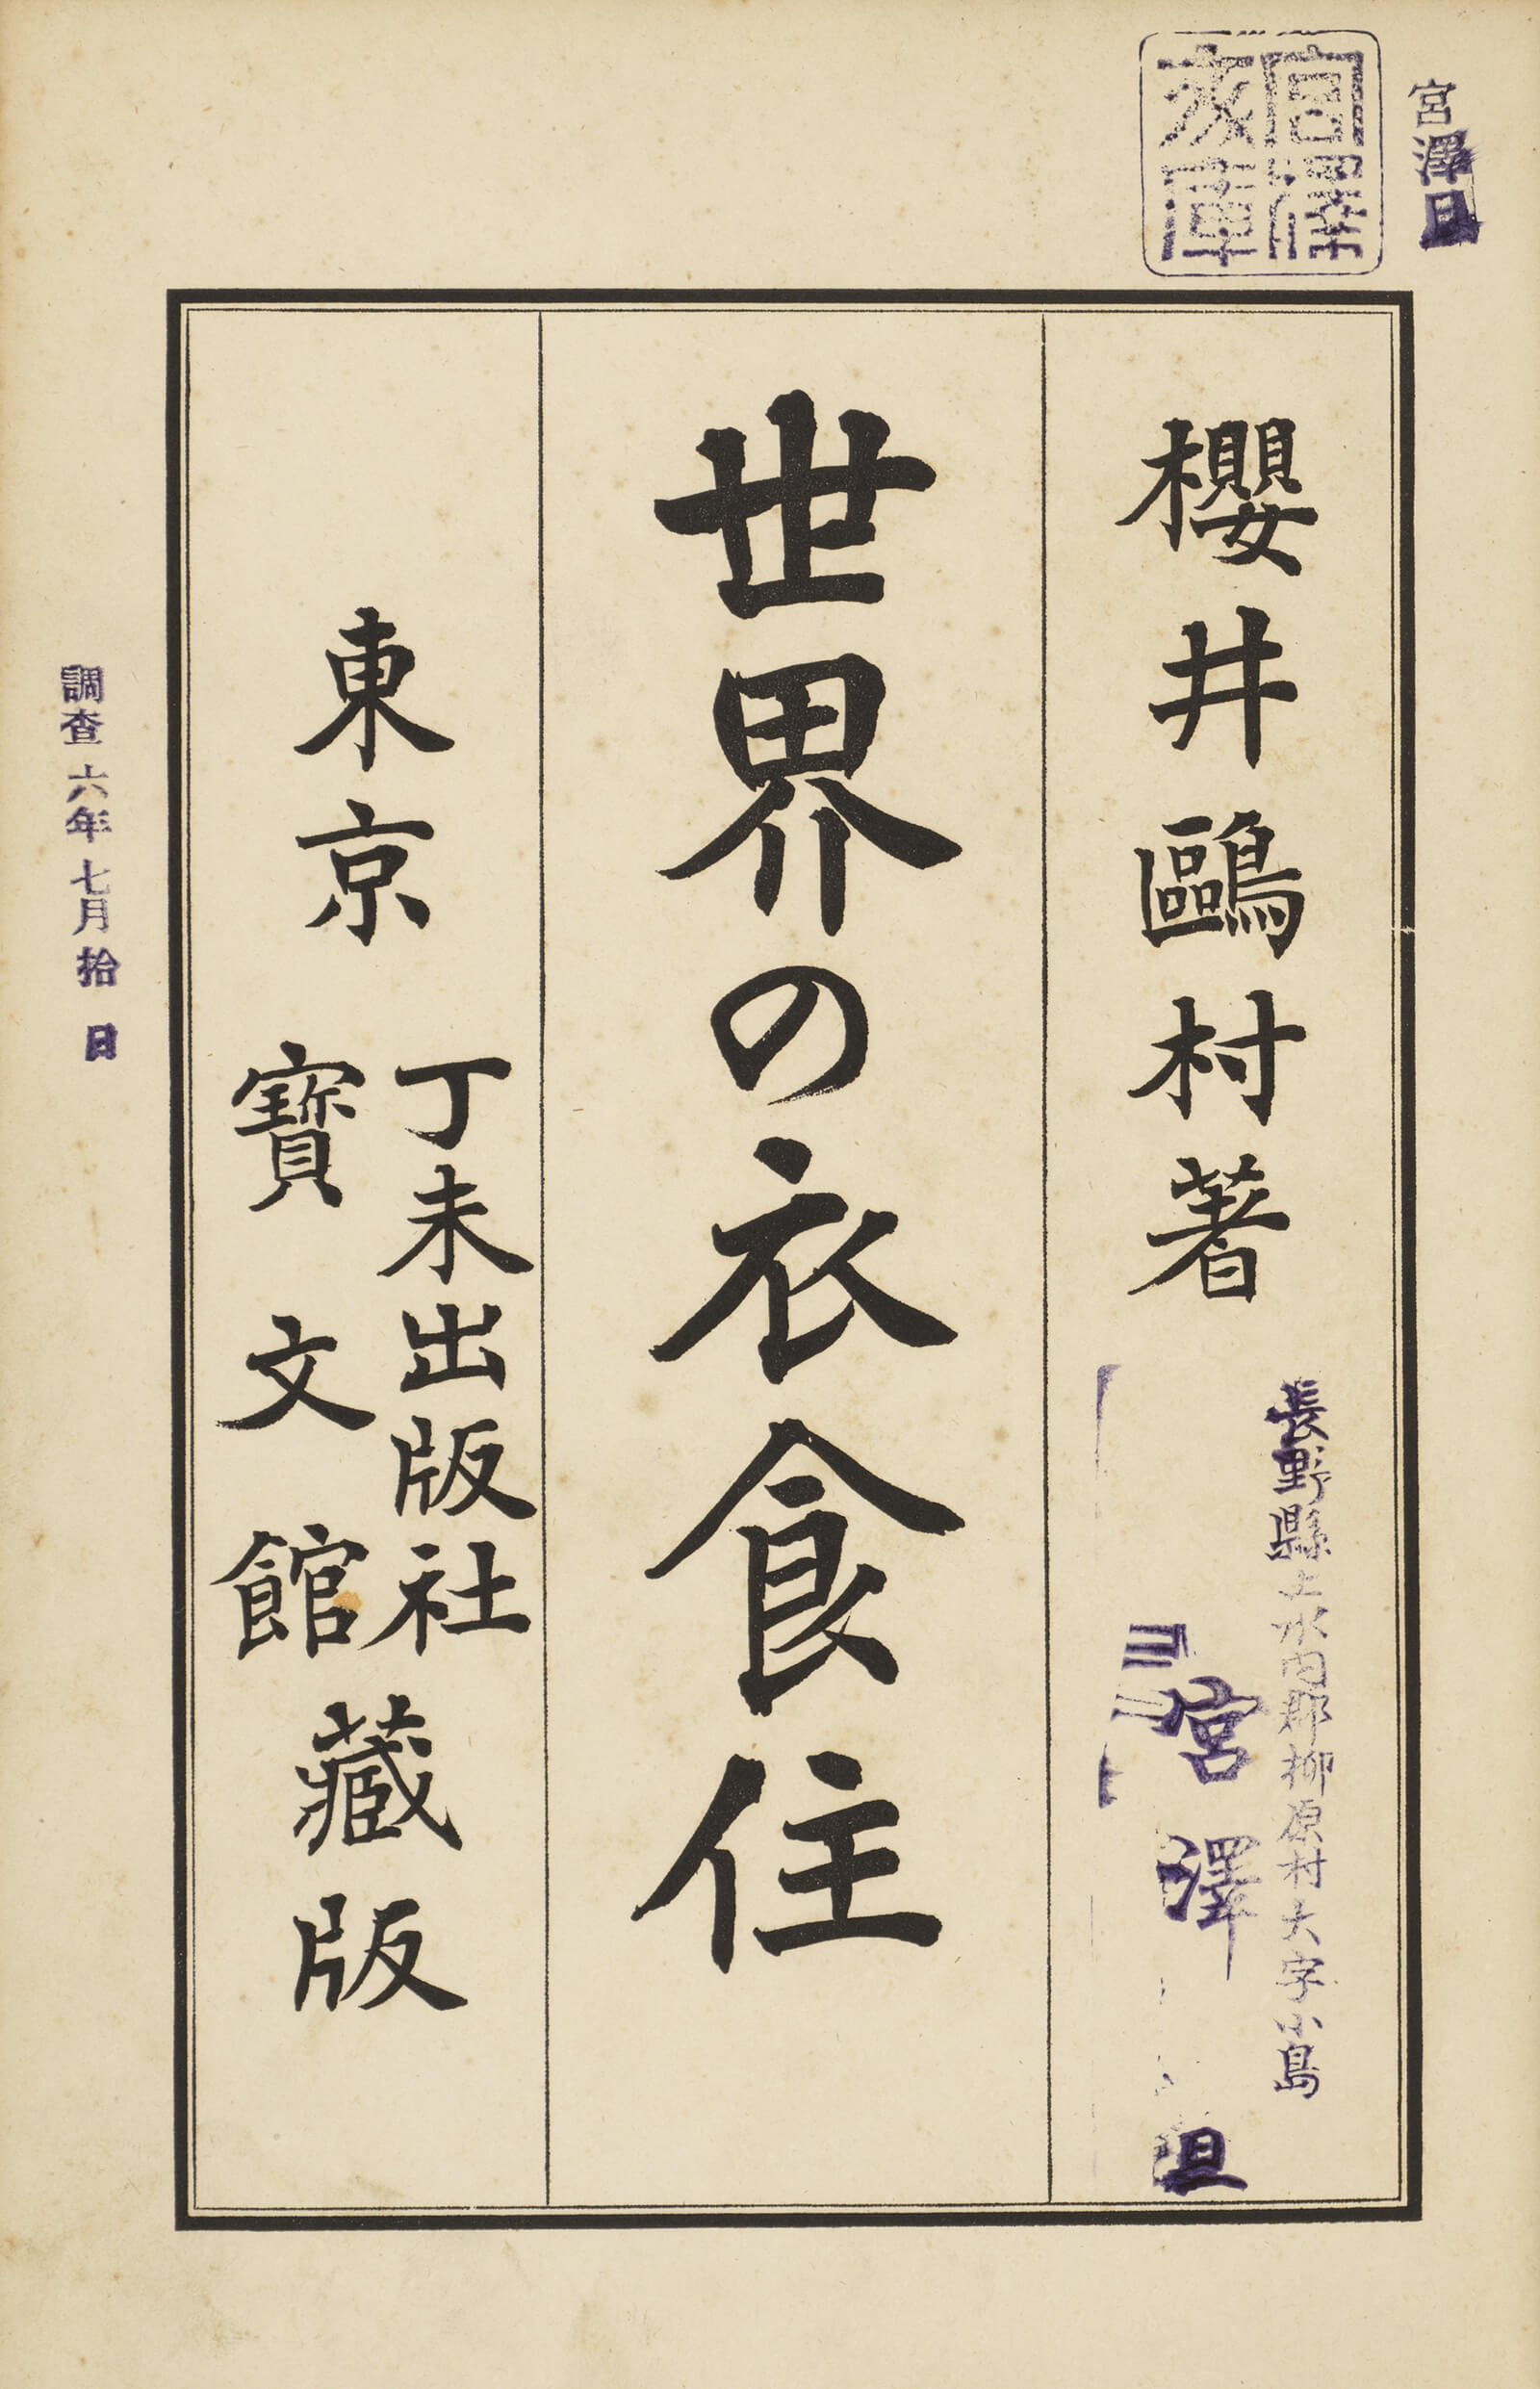 宮澤旦
宮澤
文庫
櫻井鷗村著
長野縣上水内郡柳原村大字小島
宮澤旦
世界の衣食住
東京
丁未出版社
寶文館
藏版
調查六年七月拾日